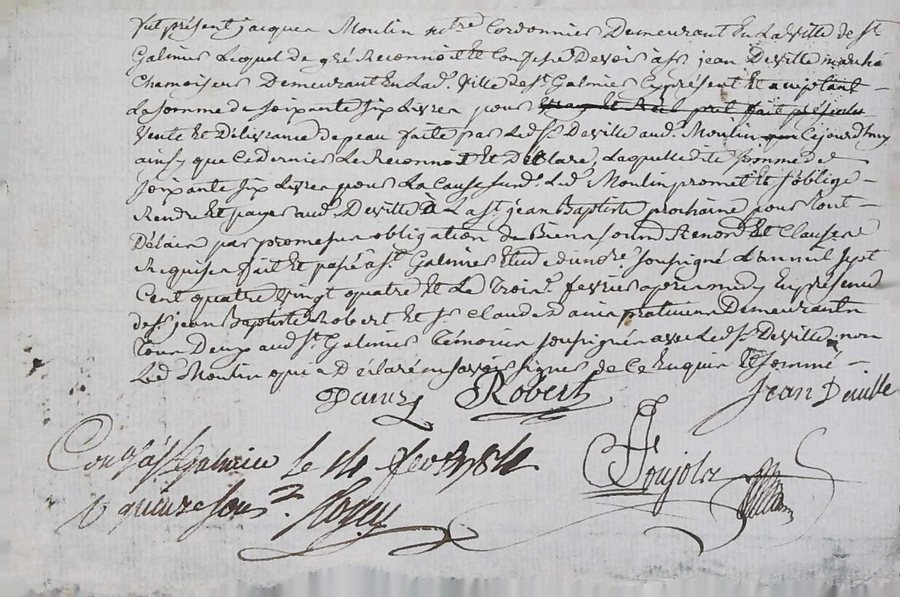 fut présent jacques Moulin me Cordonnier Demeurant En La Ville de St
Galmier Lequel de gré Reconnoit et Confesse Devoir à sr jean Deville
Chamoiseur Demeurant En Lad. Ville de St Galmier Cy présent Et acceptant
La somme de soixante six Livres pour
Vente Et Délivrance de peau faite par Led. sr Deville aud. Moulin Cejourd'huy
ainsy que Ce dernier Le Reconnoit Et Déclare, Laquelle dite somme de
soixante six Livres pour La Cause susd. Led. Moulin promet Et s'oblige
Rendre Et payer aud. Deville à La st. jean Baptiste prochaine pour tout
Délai par promesse obligation de Biens soum. Renon. Et Clauses
Requises fait Et passé à St. Galmier Etude du nore soussigné L'an mil sept
Cent quatre vingt quatre Et Le trois fevrier après midy En présence
de sr. jean Baptiste Robert Et sr Claude praticiens Demeurants
tous Deux aud. St Galmier témoins soussignés avec Led. sr. Deville non
Led. Moulin qui a Déclaré ne savoir signer de Ce Enquis Et sommé
Robert Jean Deville
à St galmier le 14 fevr 1784
quinze sous